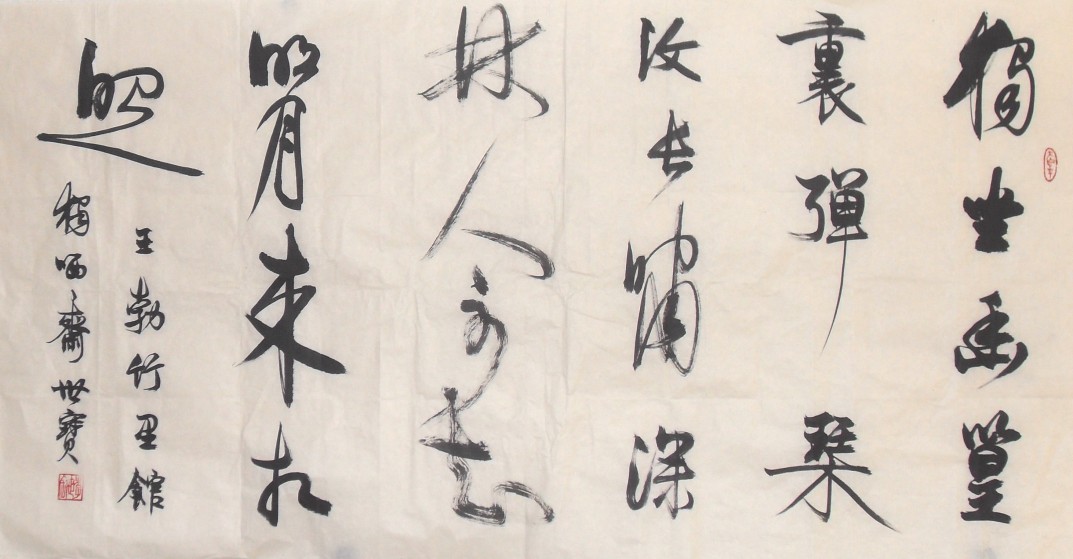 獨坐幽篁
裏彈琹
復長嘯深
林人不知
明月来相
照
王勃竹里館
齋世寶